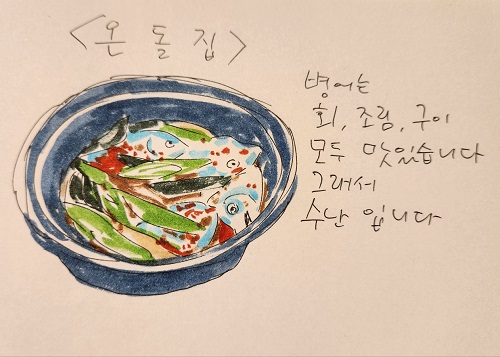 <온돌집>
병어는
회, 조림, 구이
모두 맛있습니다
그래서
수난 입니다